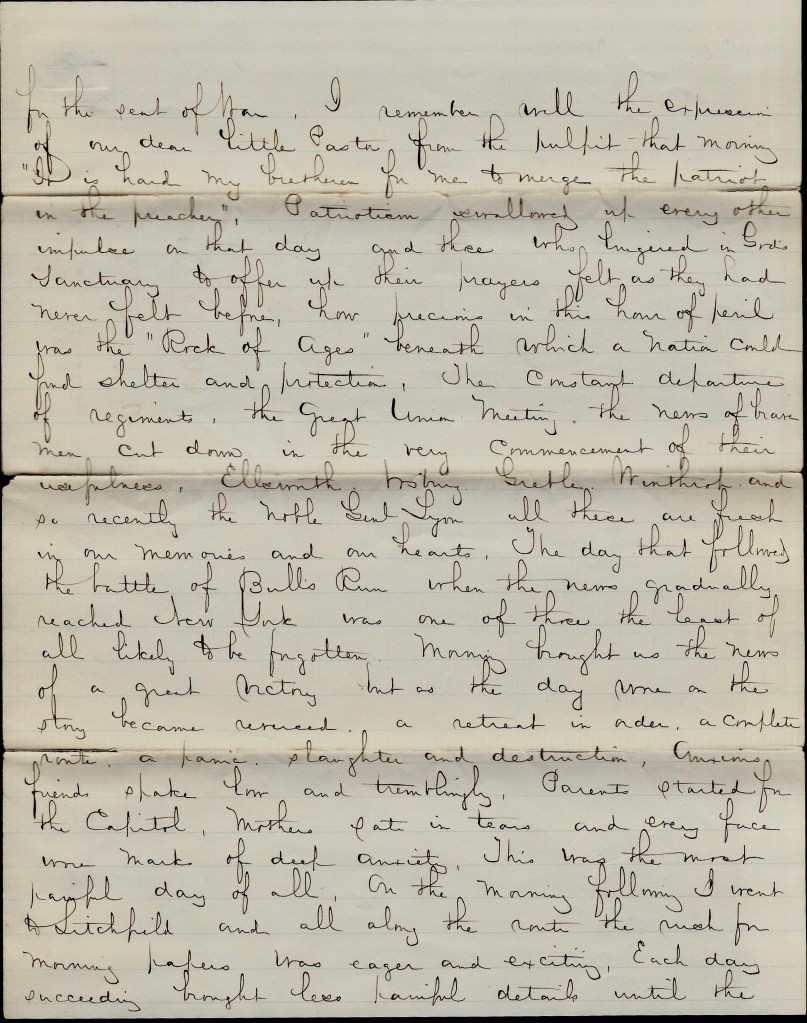 for the seat of War. I remember well the expression
of our dear little Pastor from the pulpit that morning
"It is hard my bretheren for me to merge the patriot
in the preacher". Patriotism swallowed up every other
impulse on that day and those who lingered in God's
Sanctuary to offer up their prayers felt as they had
never felt before, how precious in this hour of peril
was the "Rock of Ages" beneath which a Nation could
find shelter and protection. The constant departure
of regiments, the Great Union Meeting. the news of brave
men cut down in the very commencement of their
usefulness, Ellsworth. Vosburg. Greble. Winthrop. and
so recently the Noble Genl Lyon all these are fresh
in our memories and our hearts. The day that followed
the battle of Bulls Run when the news gradually
reached New York was one of those the least of
all likely to be forgotten. Morning brought us the news
of a great Victory but as the day wore on the
story became reversed. a retreat in order. a complete
route. a panic. slaughter and destruction, Anxious
friends spake low and tremblingly, Parents started for
the Capitol, Mothers sate in tears and every face
wore marks of deep anxiety, This was the most
painful day of all, On the morning following I went
to Litchfield and all along the route the rush for
morning papers was eager and exciting. Each day
succeeding brought less painful details until the